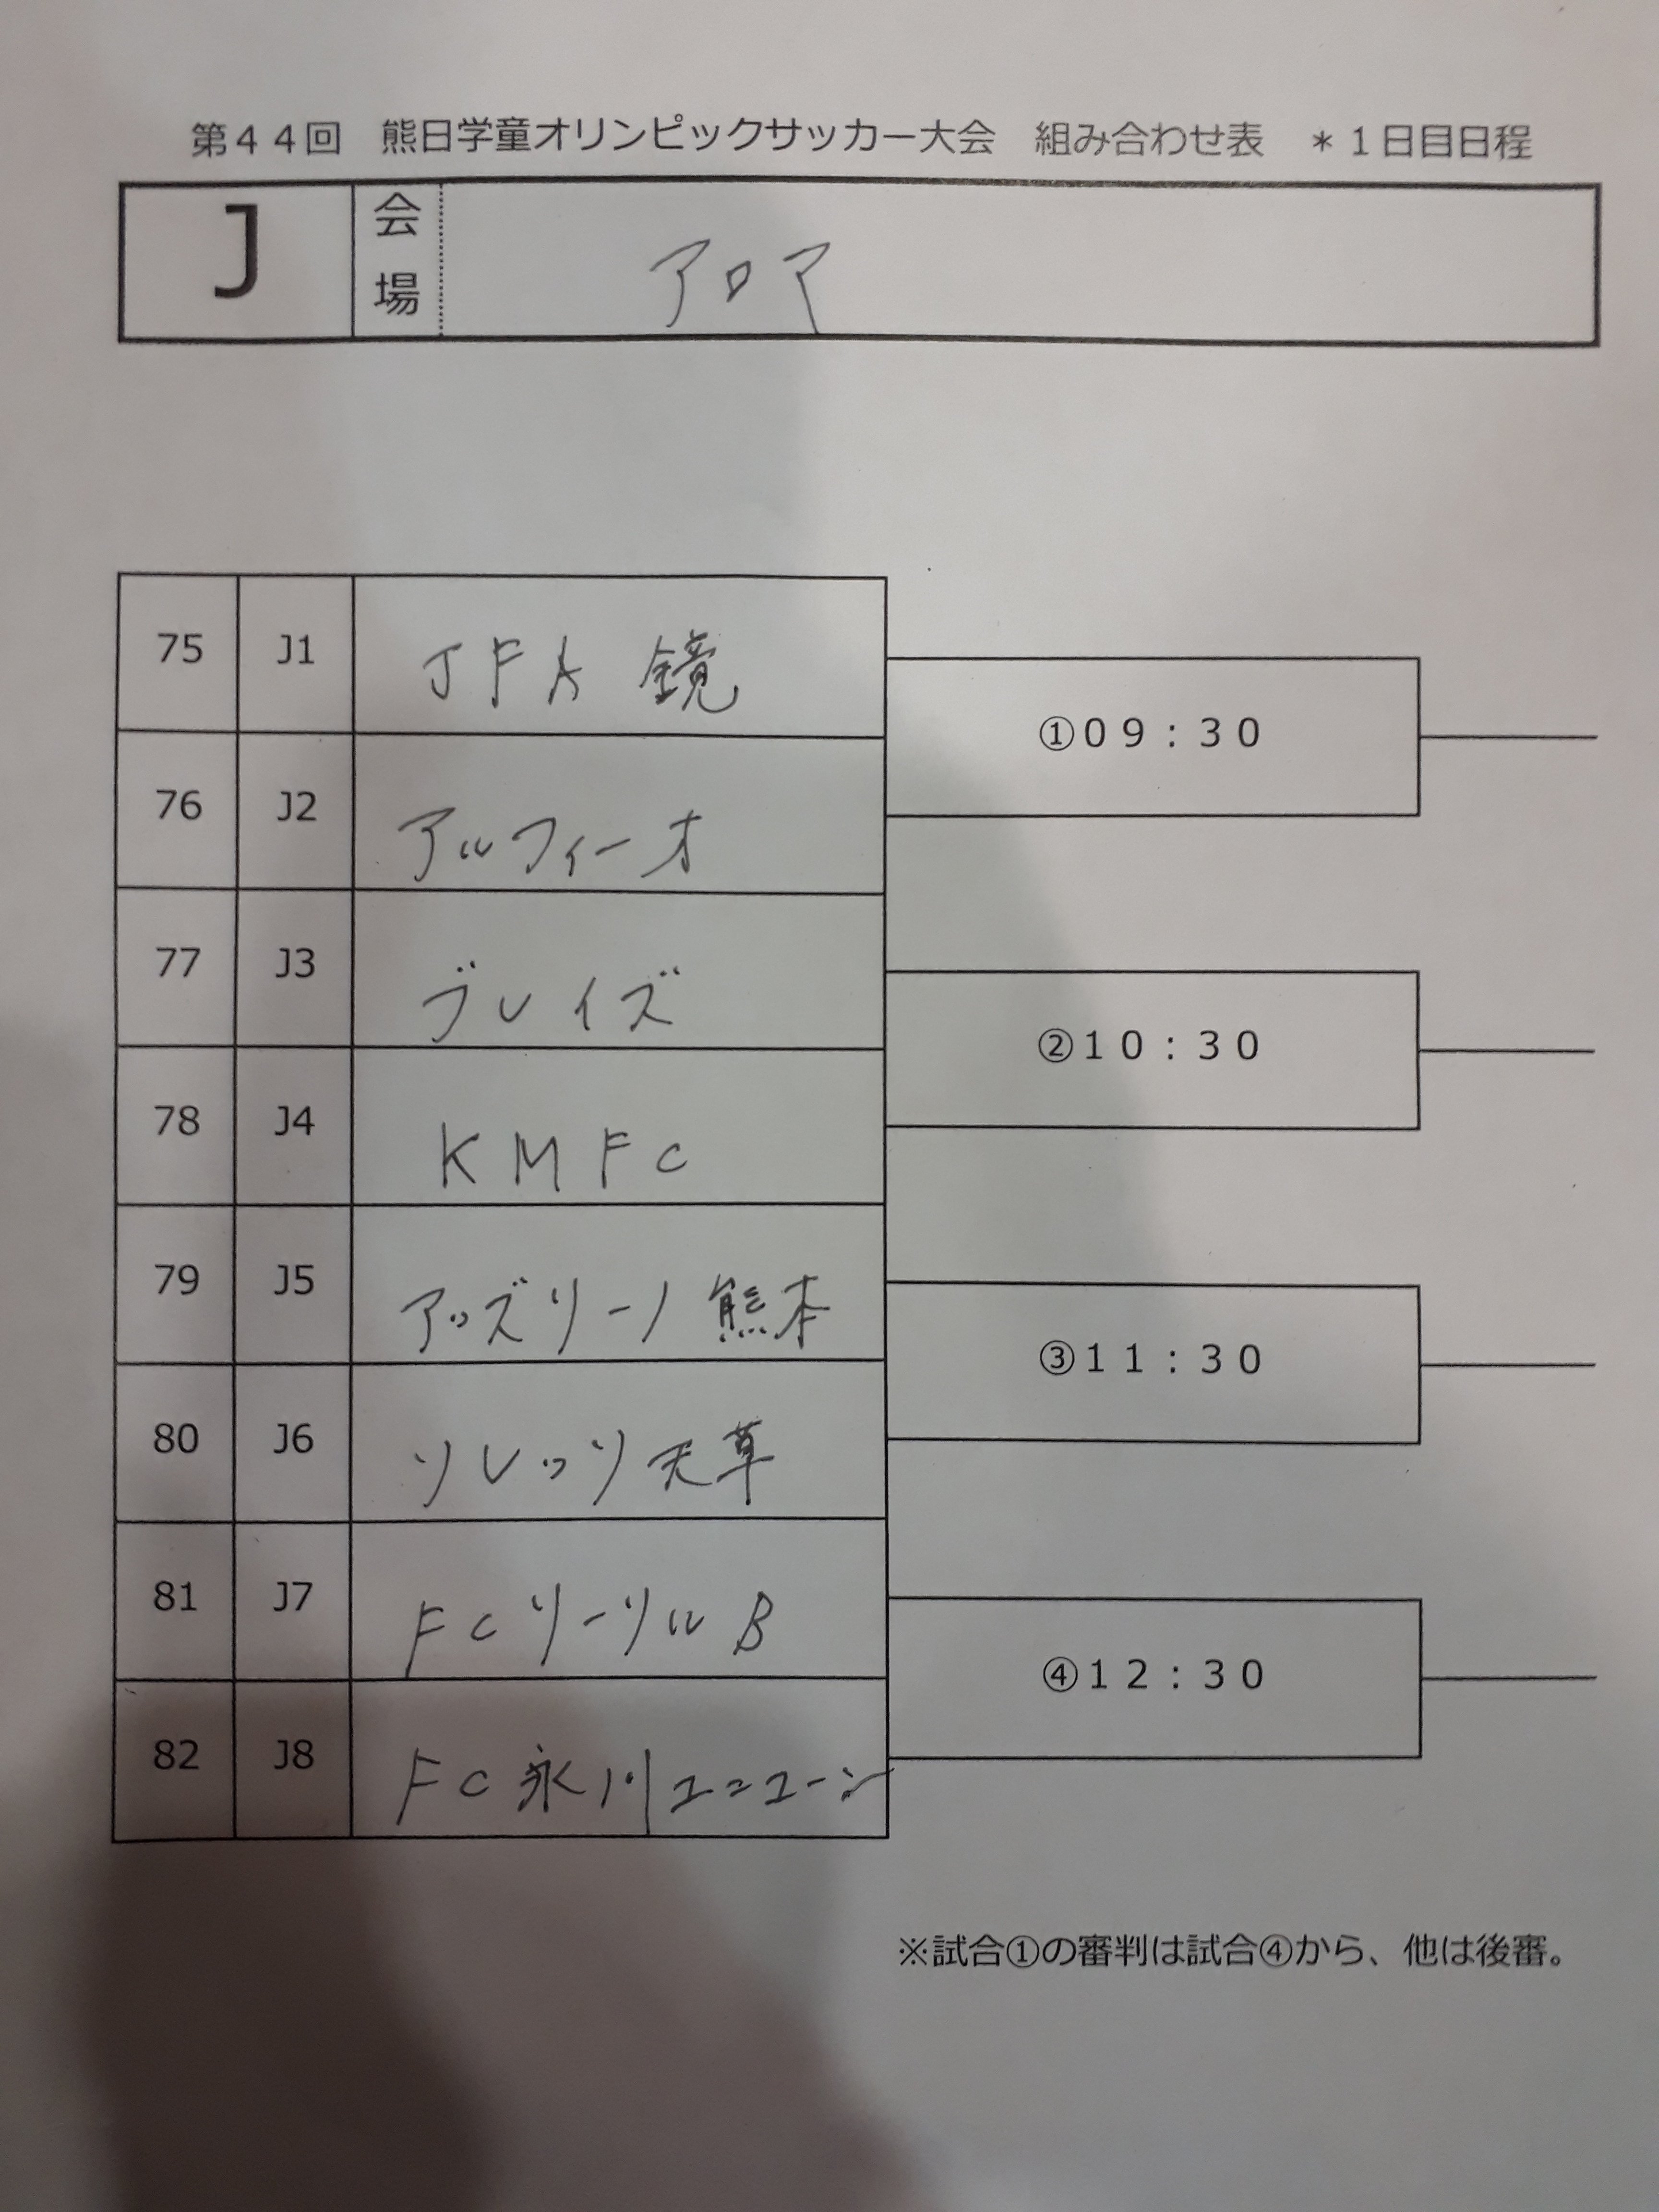 第４４回　熊日学童オリンピックサッカー大会　組み合わせ表　＊１日目日程
J 会場 アロマ
75 J1 JFA 鏡
①０９：３０
76 J2 アルフィーオ
77 J3 ブレイズ
②１０：３０
78 J4 KMFC
79 J5 アッズリーノ熊本
③１１：３０
80 J6 ソレッソ天草
81 J7 FCリーソルB
④１２：３０
82 J8 FC氷川ユニコーン
※試合①の審判は試合④から、他は後審。